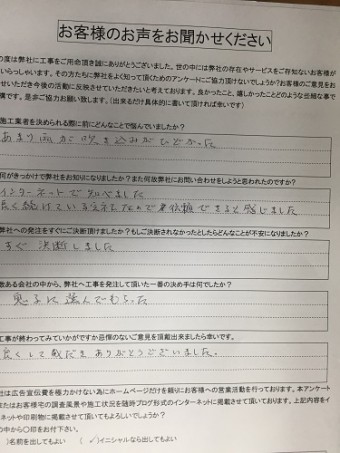 お客様のお声をお聞かせください
の度は弊社に工事をご用命頂き誠にありがとうございました。世の中には弊社の存在やサービスをご存知ないお客様が
いらっしゃいます。その方たちに弊社をよく知って頂くためのアンケートにご協力頂けないでしょうか？お客様のご意見をお
せいただき今後の活動に反映させていただきたいと考えております。良かったこと、嬉しかったことどのような些細な事で
構です。是非ご協力お願い致します。（出来るだけ具体的に書いて頂ければ幸いです）
施工業者を決められる際に前にどんなことで悩んでいましたか？
あまり雨が吹き込みがひどかった
何がきっかけで弊社をお知りになりましたか？また何故弊社にお問い合わせをしようと思われたのですか？
インターネットで知べました
長く続けている会社なので信頼できると感じました
弊社への発注をすぐにご決断頂けましたか？もしご決断されなかったとしたらどんなことが不安になりましたか？
すぐ決断しました
数ある会社の中から、弊社へ工事を発注して頂いた一番の決め手は何でしたか？
息子に選んでもらった
工事が終わってみていかがですか忌憚のないご意見を頂戴出来ましたら幸いです。
良くして戴だきありがとうございました。
社は広告宣伝費を極力かけない為にホームページだけを頼りにお客様への営業活動を行っております。本アンケート
またはお客様宅の調査風景や施工状況を随時ブログ形式のインターネットに掲載させて頂いております。上記内容をイ
ネットや印刷物に掲載させて頂いてもよろしいでしょうか？
の中から〇印をお付下さい。
）名前を出してもよい （✓）イニシャルなら出してもよい